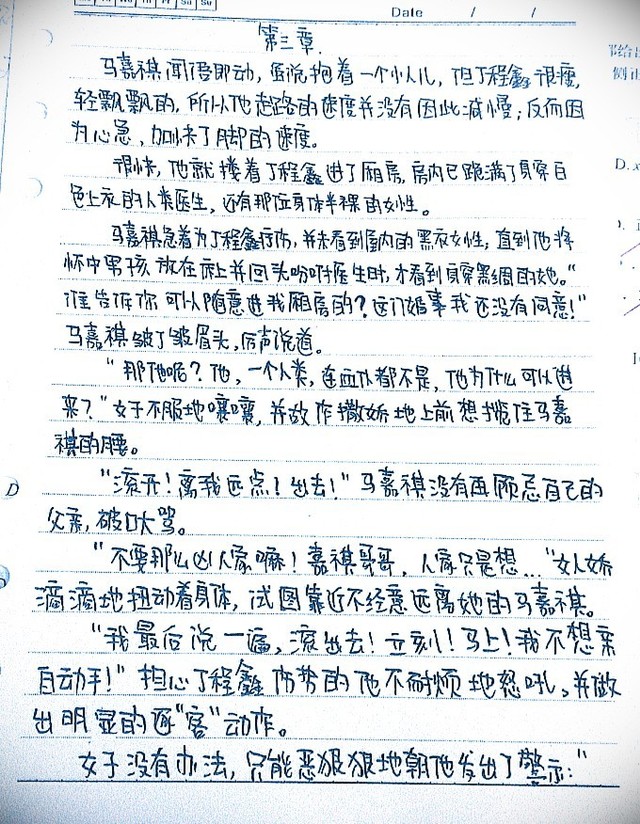 Mo Tu We Th Fr Sa Su
Date / /
第三章.
马嘉祺闻语即动，虽说抱着一个小人儿，但丁程鑫很瘦，
轻飘飘的，所以他赶路的速度并没有因此减慢；反而因
为心急，加快了脚的速度。
很快，他就搂着丁程鑫进了厢房，房内已跪满了身穿白
色上衣的人类医生，还有那位身体半裸的女性。
马嘉祺急着为丁程鑫疗伤，并未看到屋内的黑衣女性，直到他将
怀中男孩放在床上并回头吩咐医生时，才看到身穿黑绸的她。“
谁告诉你可以随意进我厢房的？这门婚事我还没有同意！”
马嘉祺皱了皱眉头，厉声说道。
“那他呢？他，一个人类，连血仆都不是，他为什么可以进
来？”女子不服地嚷嚷，并故作撒娇地上前想搂住马嘉
祺的腰。
“滚开！离我远点！出去！”马嘉祺没有再顾忌自己的
父亲，破口大骂。
“不要那么凶人家嘛！嘉祺哥哥，人家只是想...“女人娇
滴滴地扭动着身体，试图靠近不经意远离她的马嘉祺。
“我最后说一遍，滚出去！立刻！马上！我不想亲
自动手！”担心丁程鑫伤势的他不耐烦地怒吼，并做
出明显的逐“客”动作。
女子没有办法，只能恶狠狠地朝他发出了警示：“
D
D.